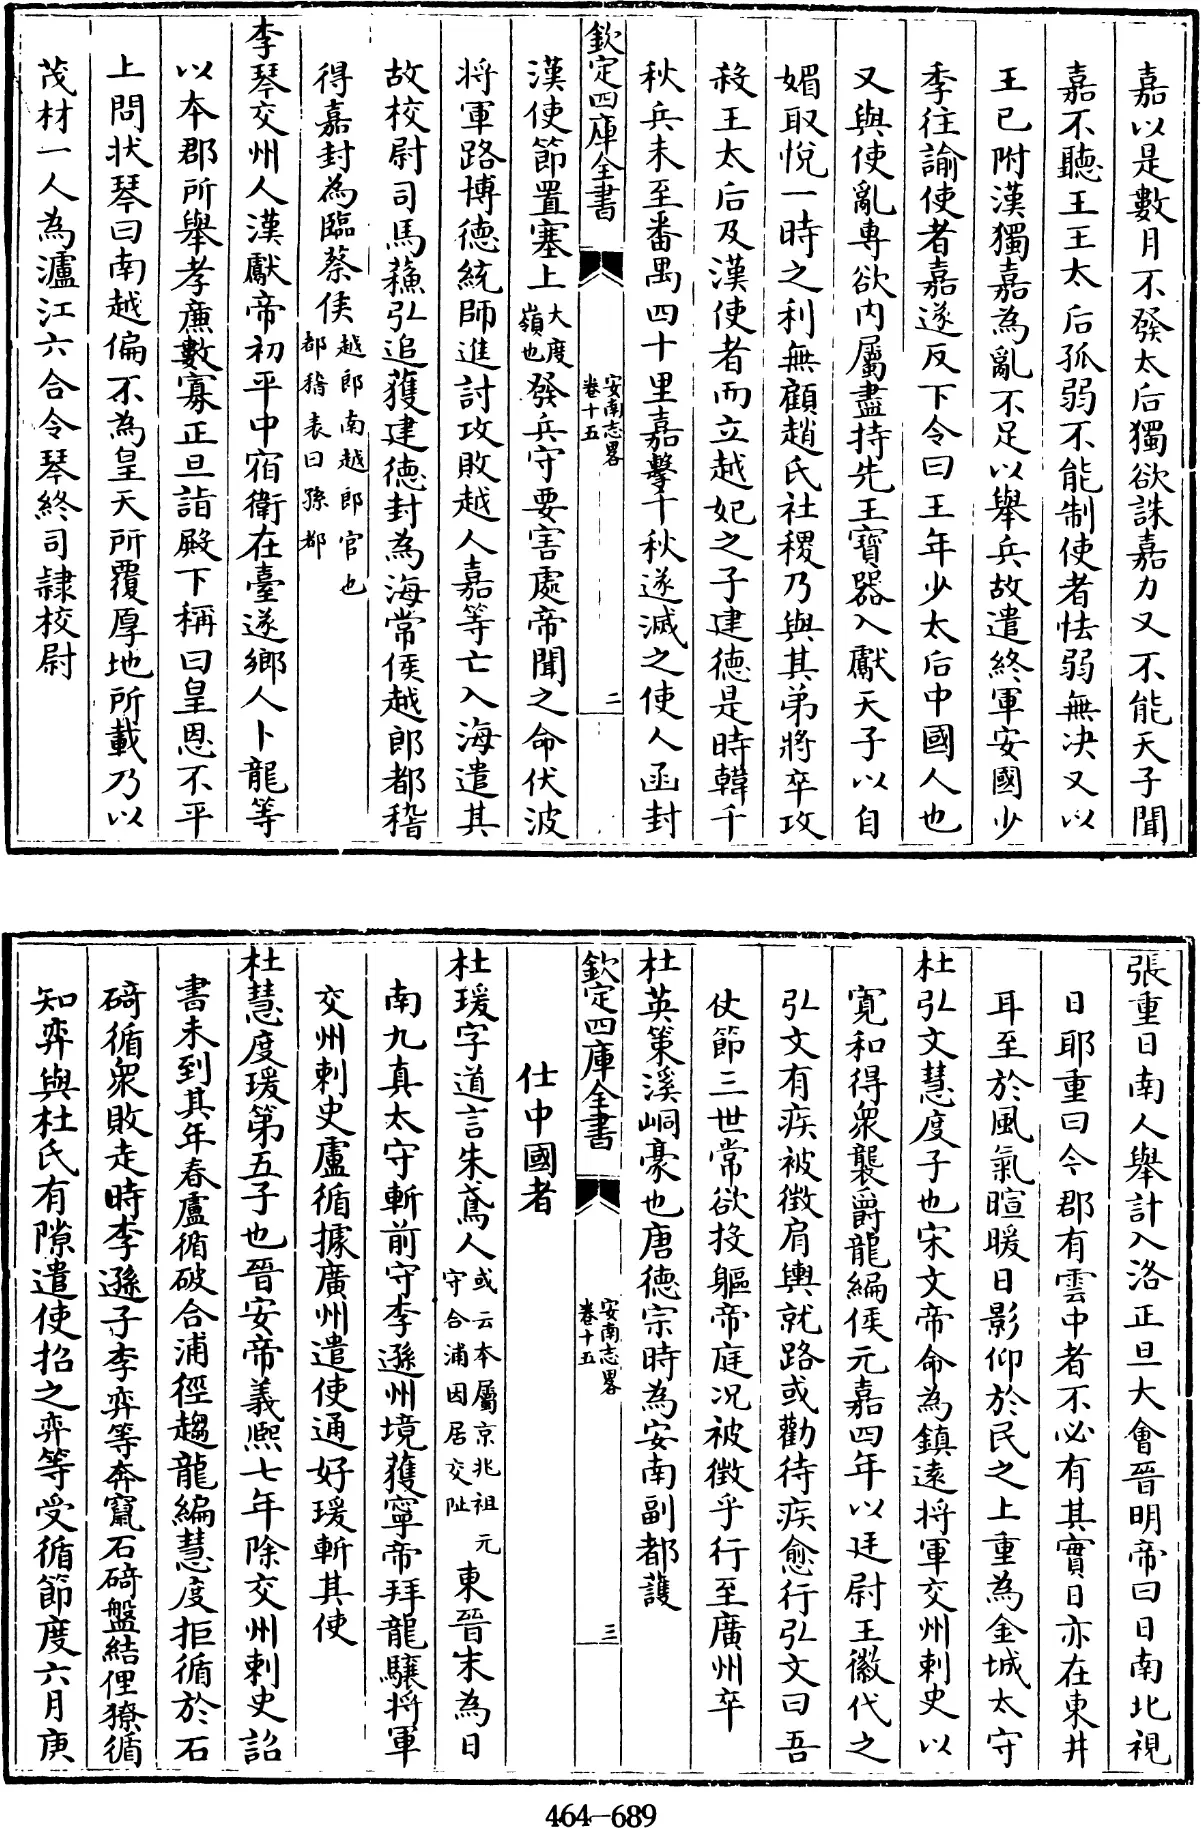 嘉以是數月不發太后獨欲誅嘉力又不能天子聞
嘉不聽王王太后孤弱不能制使者怯弱無决又以
王已附漢獨嘉為亂不足以舉兵故遣終軍安國少
季往諭使者嘉遂反下令曰王年少太后中國人也
又與使亂專欲内屬盡持先王寶器入獻天子以自
媚取悅一時之利無顧趙氏社稷乃與其弟將卒攻
殺王太后及漢使者而立越妃之子建德是時韓千
秋兵未至番禺四十里嘉擊千秋遂滅之使人函封
欽定四庫全書 安南志畧 卷十五 二
漢使節置塞上大庾嶺也發兵守要害處帝聞之命伏波
將軍路博德統師進討攻敗越人嘉等亡入海遣其
故校尉司馬蘓弘追獲建德封為海常侯越郎都稽
得嘉封為臨蔡侯越郎南越郎官也都稽表曰孫都
李琴交州人漢獻帝初平中宿衛在臺遂鄉人卜龍等
以本郡所舉孝亷數寡正旦詣殿下稱曰皇恩不平
上問狀琴曰南越偏不為皇天所覆厚地所載乃以
茂材一人為瀘江六合令琴終司隷校尉
張重日南人舉計入洛正旦大會晉明帝曰日南北視
日耶重曰今郡有雲中者不必有其實日亦在東井
耳至於風氣暄暖日影仰於民之上重為金城太守
杜弘文慧度子也宋文帝命為鎮遠將軍交州刺史以
寛和得衆襲爵龍編侯元嘉四年以廷尉王徽代之
弘文有疾被徴肩輿就路或勸待疾愈行弘文曰吾
仗節三世常欲投軀帝庭况被徴乎行至廣州卒
杜英策溪峒豪也唐德宗時為安南副都護
欽定四庫全書 安南志畧 卷十五 三
仕中國者
杜瑗字道言朱鳶人或云本屬京兆祖元守合浦因居交阯東晉末為日
南九真太守斬前守李遜州境獲寧帝拜龍驤將軍
交州刺史盧循據廣州遣使通好瑗斬其使
杜慧度瑗第五子也晉安帝義熙七年除交州刺史詔
書未到其年春盧循破合浦徑趨龍編慧度拒循於石
碕循衆敗走時李遜子李弈等奔竄石碕盤結俚獠循
知弈與杜氏有隙遣使招之弈等受循節度六月庚
464-689